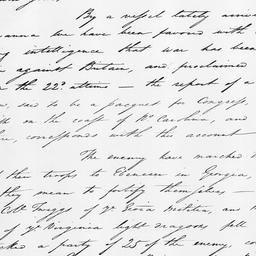 By a vessel lately arriv
anna we have been favored with
ing intelligence that war has been
against Britain, and proclaimed
n the 22d ultimo — the report of a
, said to be a pacquet for Congress,
th on the coast of No Carolina, and
re, corresponds with this account
The enemy have marched
f their troops to Ebenezer in Georgia,
they mean to fortify themselves —
Colo Twiggs of ye Geoia Militia, and
of ye Virginia light dragoons fell
cked a party of 25 of the enemy, co